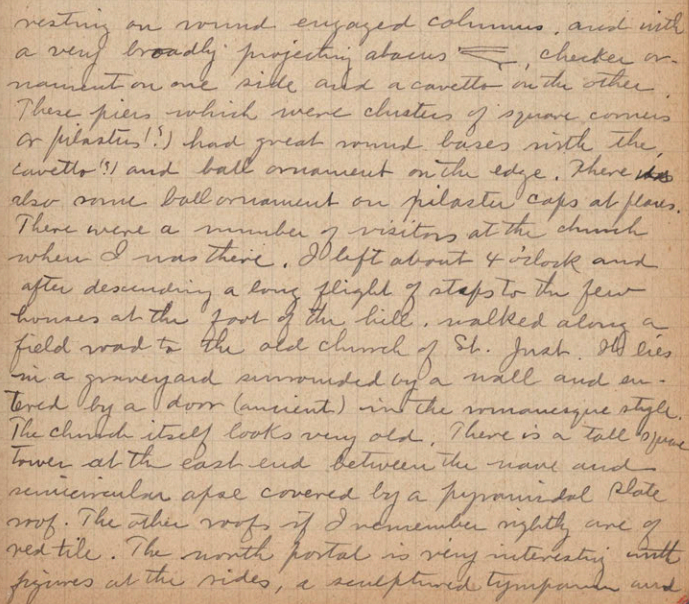 resting on round engaged columns, and with
a very broadly projecting abacus, checker or-
nament on one side and a cavetto on the other.
These piers which were clusters of square corners
or pilasters(?) had great round bases with the
cavetto(?) and ball ornament on the edge. There is
also some ball ornament on pilaster caps at places.
There were a number of visitors at the church
when I was there. I left about 4 o'clock and
after descending a long flight of steps to the few
houses at the foot of the hill, walked along a
field road to the old church of St. Just. It lies
in a graveyard surrounded by a wall and en-
tered by a door (ancient) in the romanesque style.
The church itself looks very old. There is a tall square
tower at the east end between the nave and
semicircular apse covered by a pyramidal slate
roof. The other roofs if I remember rightly are of
red tile. The north portal is very interesting with
figures at the sides, a sculptured tympanum and